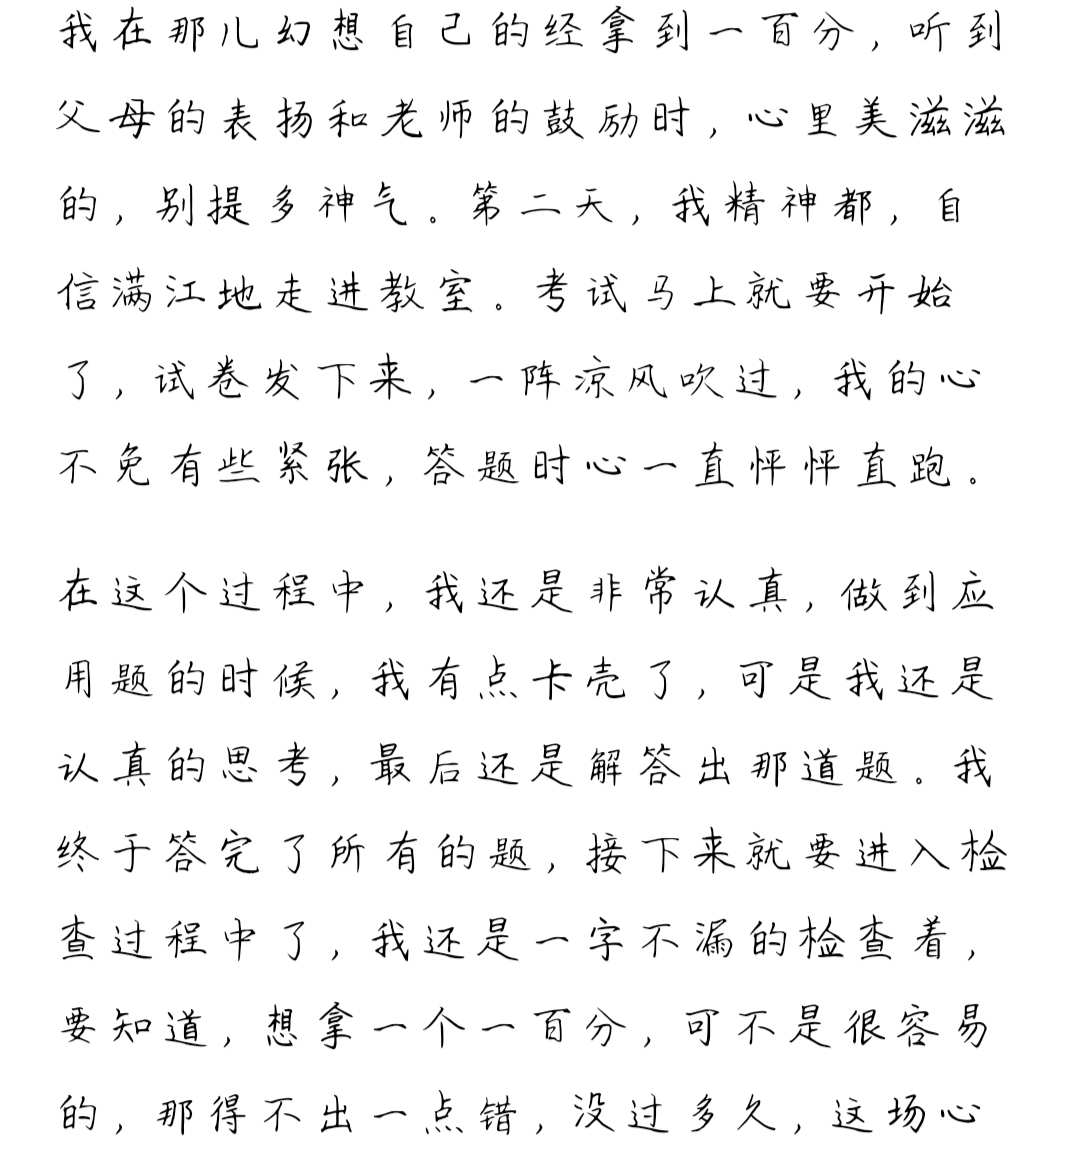 我在那儿幻想自己的经拿到一百分，听到
父母的表扬和老师的鼓励时，心里美滋滋
的，别提多神气。第二天，我精神都，自
信满江地走进教室。考试马上就要开始
了，试卷发下来，一阵凉风吹过，我的心
不免有些紧张，答题时心一直怦怦直跑。
在这个过程中，我还是非常认真，做到应
用题的时候，我有点卡壳了，可是我还是
认真的思考，最后还是解答出那道题。我
终于答完了所有的题，接下来就要进入检
查过程中了，我还是一字不漏的检查着，
要知道，想拿一个一百分，可不是很容易
的，那得不出一点错，没过多久，这场心